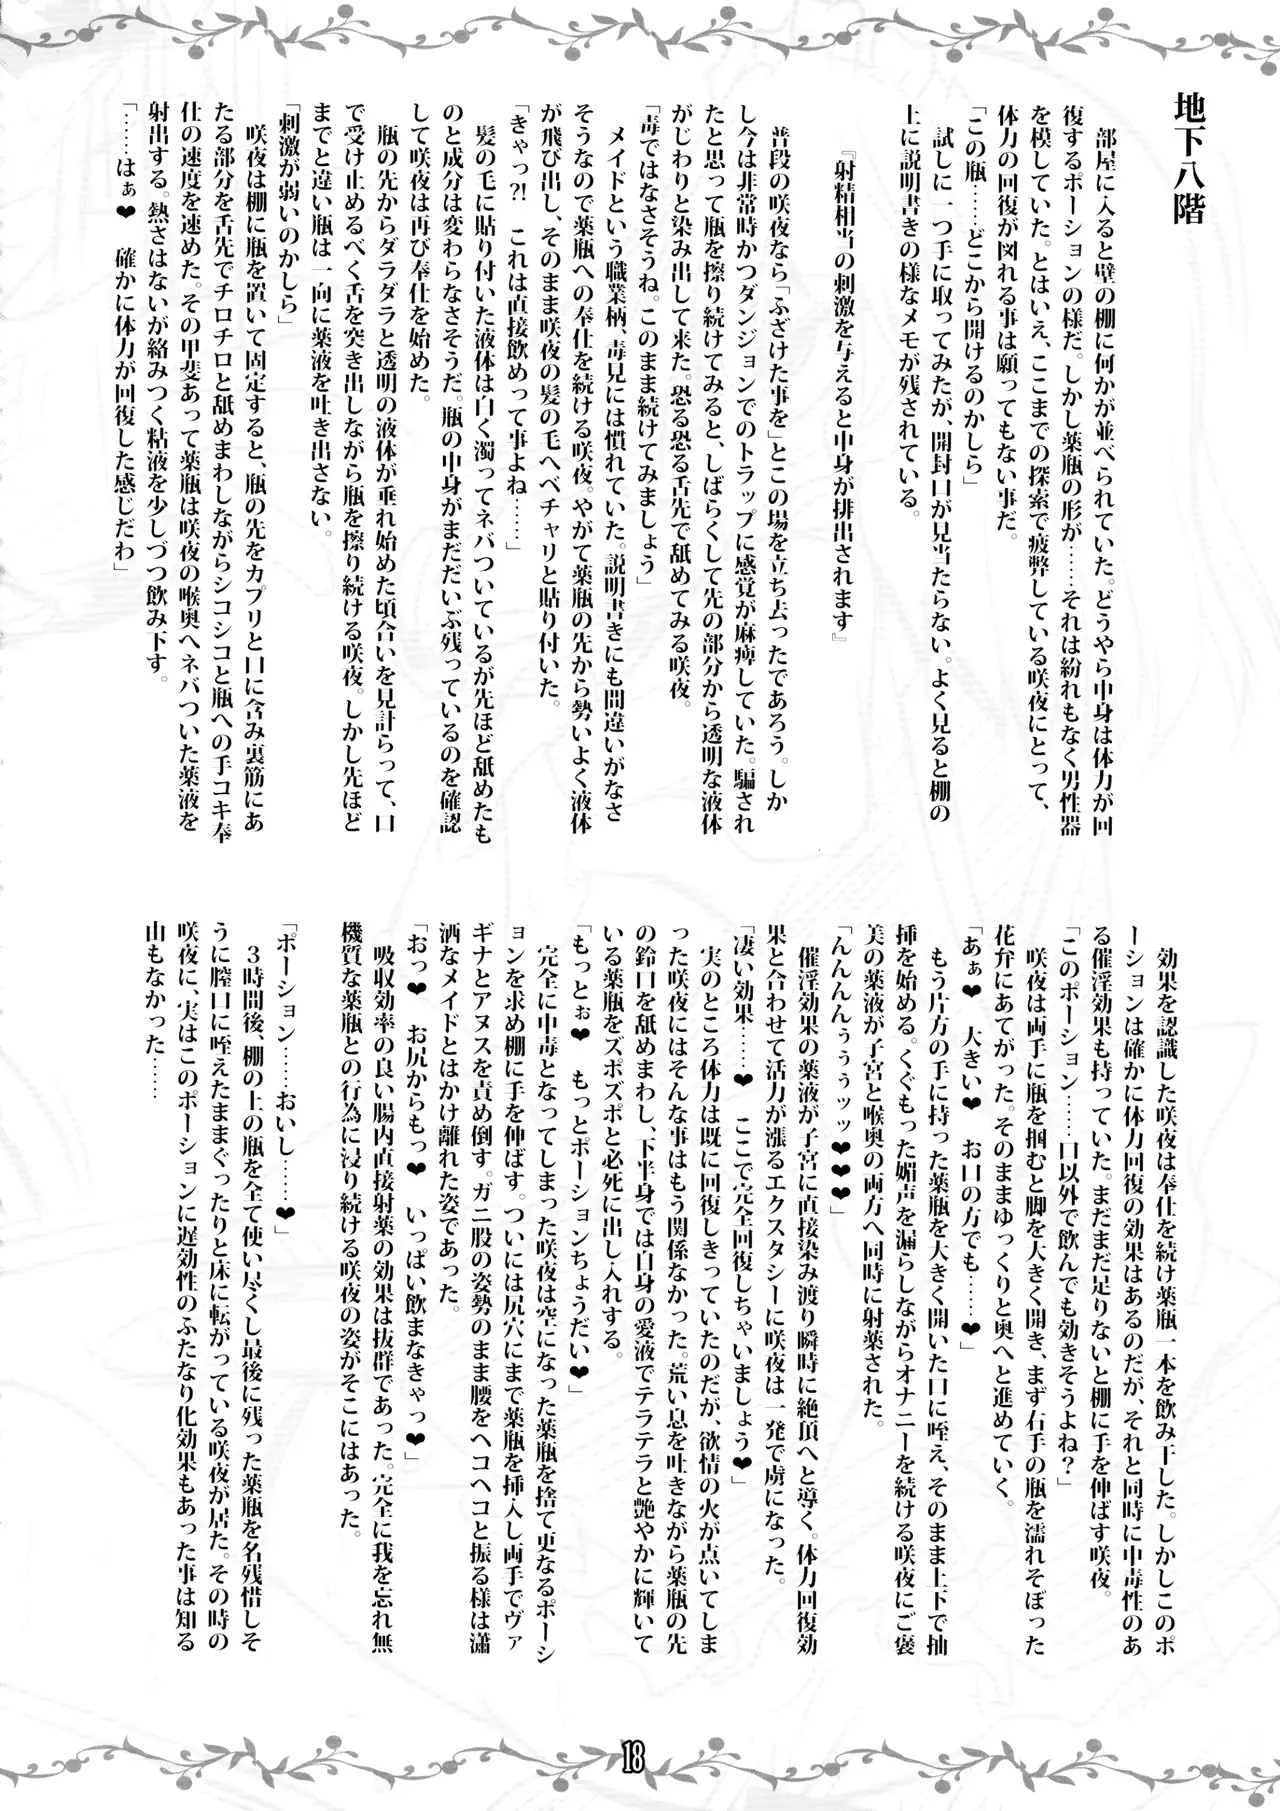 地下八階
部屋に入ると壁の棚に何かが並べられていた。どうやら中身は体力が回
復するポーションの様だ。しかし薬瓶の形が……それは紛れもなく男性器
を模していた。とはいえ、ここまでの探索で疲弊している咲夜にとって、
体力の回復が図れる事は願ってもない事だ。
「この瓶……どこから開けるのかしら」
試しに一つ手に取ってみたが、開封口が見当たらない。よく見ると棚の
上に説明書きの様なメモが残されている。
『射精相当の刺激を与えると中身が排出されます』
普段の咲夜なら「ふざけた事を」とこの場を立ち去ったであろう。しか
し今は非常時かつダンジョンでのトラップに感覚が麻痺していた。騙され
たと思って瓶を擦り続けてみると、しばらくして先の部分から透明な液体
がじわりと染み出して来た。恐る恐る舌先で舐めてみる咲夜。
「毒ではなさそうね。このまま続けてみましょう」
メイドという職業柄、毒見には慣れていた。説明書きにも間違いがなさ
そうなので薬瓶への奉仕を続ける咲夜。やがて薬瓶の先から勢いよく液体
が飛び出し、そのまま咲夜の髪の毛へベチャリと貼り付いた。
「きゃっ?! これは直接飲めって事よね……」
髪の毛に貼り付いた液体は白く濁ってネバついているが先ほど舐めたも
のと成分は変わらなさそうだ。瓶の中身がまだだいぶ残っているのを確認
して咲夜は再び奉仕を始めた。
瓶の先からダラダラと透明の液体が垂れ始めた頃合いを見計らって、口
で受け止めるべく舌を突き出しながら瓶を擦り続ける咲夜。しかし先ほど
までと違い瓶は一向に薬液を吐き出さない。
「刺激が弱いのかしら」
咲夜は棚に瓶を置いて固定すると、瓶の先をカプリと口に含み裏筋にあ
たる部分を舌先でチロチロと舐めまわしながらシコシコと瓶への手コキ奉
仕の速度を速めた。その甲斐あって薬瓶は咲夜の喉奥へネバついた薬液を
射出する。熱さはないが絡みつく粘液を少しづつ飲み下す。
「……はぁ❤ 確かに体力が回復した感じだわ」
効果を認識した咲夜は奉仕を続け薬瓶一本を飲み干した。しかしこのポ
ーションは確かに体力回復の効果はあるのだが、それと同時に中毒性のあ
る催淫効果も持っていた。まだまだ足りないと棚に手を伸ばす咲夜。
「このポーション……口以外で飲んでも効きそうよね?」
咲夜は両手に瓶を掴むと脚を大きく開き、まず右手の瓶を濡れそぼった
花弁にあてがった。そのままゆっくりと奥へと進めていく。
「あぁ❤ 大きい❤ お口の方でも……❤」
もう片方の手に持った薬瓶を大きく開いた口に咥え、そのまま上下で抽
挿を始める。くぐもった媚声を漏らしながらオナニーを続ける咲夜にご褒
美の薬液が子宮と喉奥の両方へ同時に射薬された。
「んんんんぅぅぅッッ❤❤❤」
催淫効果の薬液が子宮に直接染み渡り瞬時に絶頂へと導く。体力回復効
果と合わせて活力が漲るエクスタシーに咲夜は一発で虜になった。
「凄い効果……❤ ここで完全回復しちゃいましょう❤」
実のところ体力は既に回復しきっていたのだが、欲情の火が点いてしま
った咲夜にはそんな事はもう関係なかった。荒い息を吐きながら薬瓶の先
の鈴口を舐めまわし、下半身では自身の愛液でテラテラと艶やかに輝いて
いる薬瓶をズポズポと必死に出し入れする。
「もっとぉ❤ もっとポーションちょうだい❤」
完全に中毒となってしまった咲夜は空になった薬瓶を捨て更なるポーシ
ョンを求め棚に手を伸ばす。ついには尻穴にまで薬瓶を挿入し両手でヴァ
ギナとアヌスを責め倒す。ガニ股の姿勢のまま腰をヘコヘコと振る様は瀟
洒なメイドとはかけ離れた姿であった。
「おっ❤ お尻からもっ❤ いっぱい飲まなきゃっ❤」
吸収効率の良い腸内直接射薬の効果は抜群であった。完全に我を忘れ無
機質な薬瓶との行為に浸り続ける咲夜の姿がそこにはあった。
「ポーション……おいし……❤」
3時間後、棚の上の瓶を全て使い尽くし最後に残った薬瓶を名残惜しそ
うに膣口に咥えたままぐったりと床に転がっている咲夜が居た。その時の
咲夜に、実はこのポーションに遅効性のふたなり化効果もあった事は知る
由もなかった……
18